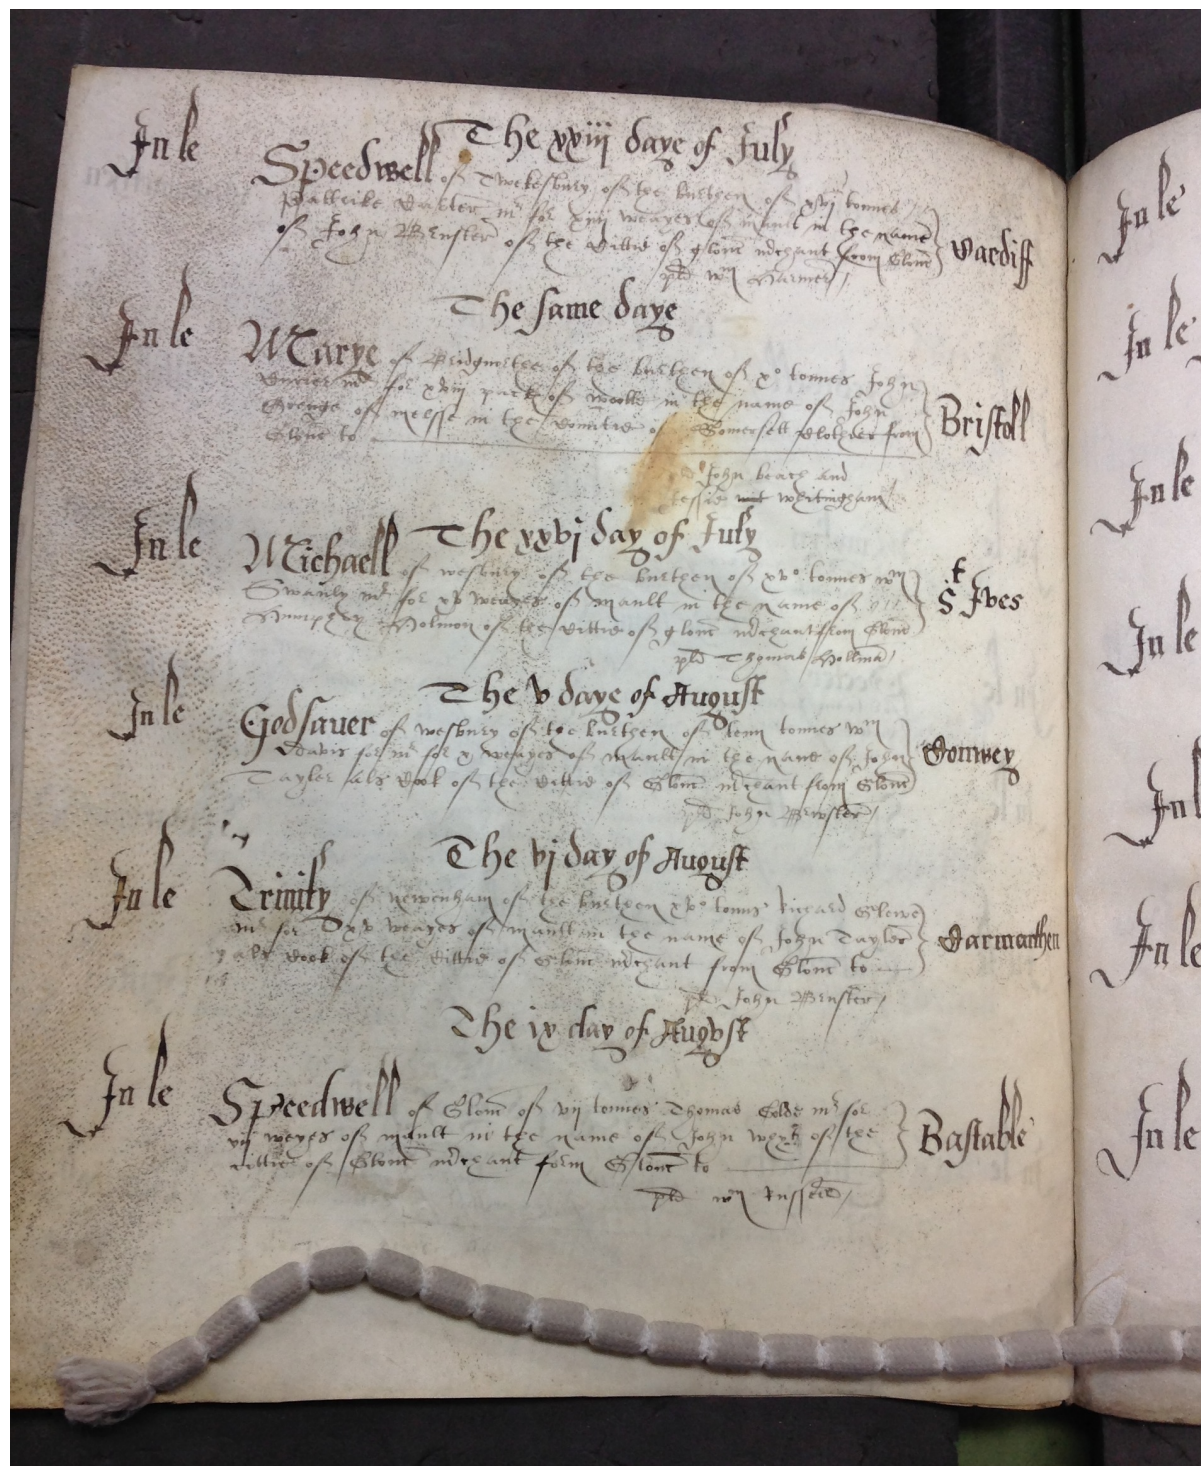 The xxiij daye of July
In le Speedwell of Twekesbury of the burthen of xvj tonnes
Pattrike Carter mr for xiiij weayes of mault in the name
of John Bruster of the Cittie of glouc mrchant from Glouc Cardiff
pld wm Harmer
The same daye
In le Marye of Bridgnorthe of the burthen of xo tonnes John
mr for xviij pack of woolle in the name of John
George of melsse in the Countie of Somersett Clothier from Bristoll
Glouc to
John beach and
whitingham
The xxvj day of July
In le Michaell of wesbury of the burthen of xvo tonnes wm
Swanly mr for xv weayes of mault in the name of St Ives
Humphry Holman of the Cittie of glouc mrchant from Glouc
pld Thomas Hollma
The v daye of August
In le Godsauer of wesbury of the burthen of tenn tonnes wm
Davis for mr for x weayes of mault in the name of John Conwey
Tayler als Cook of the Cittie of Glouc mrchant from Glouc
pld John Brwster
The vj day of August
In le Trinity of newenham of the burthen xvo tonns Richard Glowe
mr for xv weayes of mault in the name of John Tayler Carmarthen
als Cook of the Cittie of Glouc mrchant from Glouc to
pld John Bruster
The ix day of Augvst
In le Speedwell of Glouc of vij tonnes Thomas Colde mr for
vij weyes of mault in the name of John of the Bastable
Cittie of Glouc mrchant form Glouc to
pld wm
In le
In le
In le
In le
In le
In le
In le